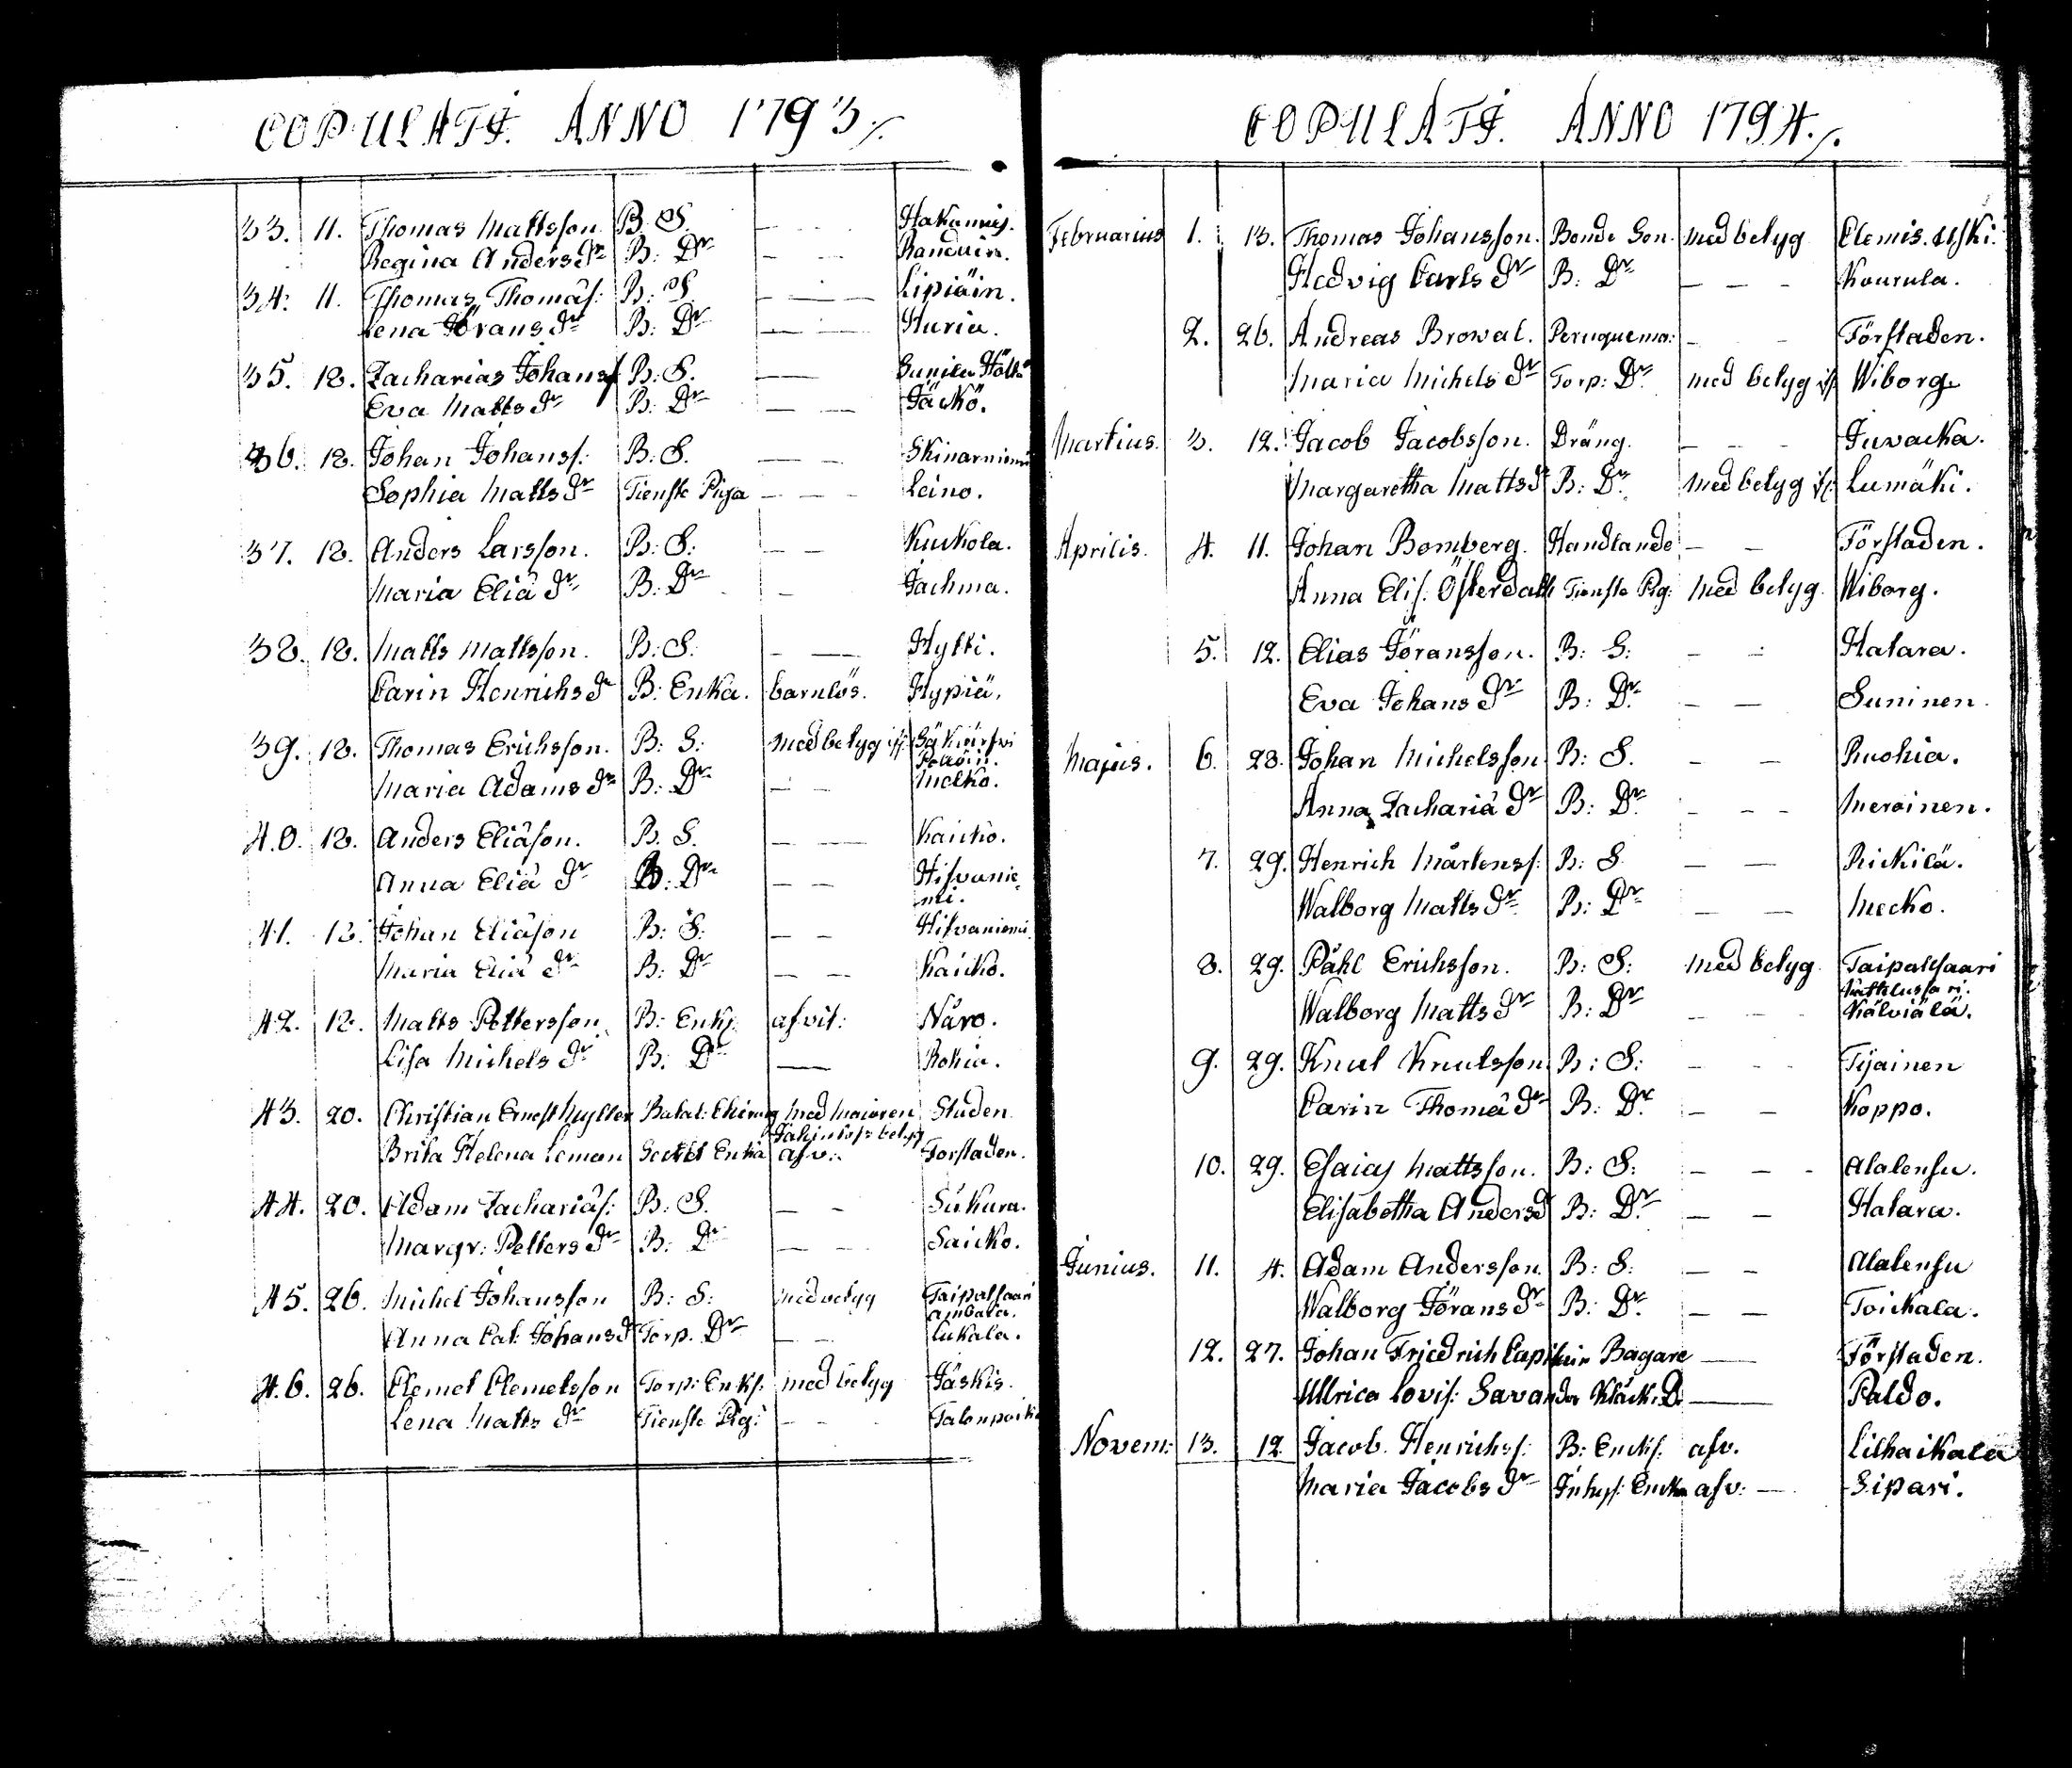 COPULATI. ANNO 1793./.
33. 11. Thomas Mattsson. B. S. — — Hakamies.
Regina Anders Dr B: Dr — — Randuin.
34. 11. Thomas Thomæs: B: S. — — Lipiäin.
Lena Görans Dr B: Dr — — Huria.
35. 18. Zacharias Johanss B: S. — Sunila
Eva Matts Dr B: Dr — — Jäckö.
36. 18. Johan Johanss: B: S. — — Skinarniemi
Sophia Matts Dr Tienste Piga — — Leino.
37. 18. Anders Larsson. B: S: — — Kuckola.
Maria Eliæ Dr B: Dr — Jachma.
38. 18. Matts Mattsson. B: S: — — Hytti.
Carin Henrichs Dr B: Enka. barnlös. Hypiä.
39. 18. Thomas Erichsson. B: S: Med belyg Säkiärfwi
Maria Adams Dr B: Dr — — Melko.
40. 18. Anders Eliæson. B. S. — — Kaicko.
Anna Eliæ Dr B: Dr — — Hifvanie-
mi.
41. 18. Johan Eliæson B: S: — — Hifvaniemi
Maria Eliæ Dr B: Dr — — Kaicko.
42. 18. Matts Pettersson B: Enkj. afvit: Näro.
Lisa Michels Dr B: Dr — Rokia.
43. 20. Christian Ernst Myller Med Maioren Staden
belyg
Brita Helena Leman Enka afv: Forstaden.
44. 20. Adam Zachariæs: B: S. — — Sukura.
Margr: Petters Dr B: Dr — — Saicko.
45. 26. Michel Johansson B: S: Med belyg Taipalsaari
Anna Cat: Johans Dr Torp. Dr — — Lukala.
46. 26. Clemet Clemetsson Torp: Enkj. Med belyg Jäskis.
Lena Matts Dr Tienste Pig: — — Talonpoika
COPULATI. ANNO 1794./.
Februarius 1. 13. Thomas Johansson. Bonde Son. Med belyg Clemis. Uski.
Hedvig Carls Dr B: Dr — — Kourula.
2. 26. Andreas Browal. Peruquema: — — Förstaden.
Maria Michels Dr Torp: Dr. Med belyg if: Wiborg.
Martius. 3. 12. Jacob Jacobsson. Dräng. — — Juvacka.
Margaretha Matts Dr B: Dr. Med belyg if: Lumäki.
Aprilis. 4. 11. Johan Bomberg. Handlande — — Förstaden.
Anna Elis: Österdahl Tienste Pig: Med belyg. Wiborg.
5. 12. Elias Göransson. B: S: — — Hatara.
Eva Johans Dr B: Dr. — — Suninen.
Majus. 6. 28. Johan Michelsson B: S. — — Ruohia.
Anna Zachariæ Dr B: Dr — — Meroinen.
7. 29. Henrich Mårtenss: B: S. — — Rickilä.
Walborg Matts Dr B: Dr — — Mecko.
8. 29. Påhl Erichsson. B: S: Med belyg Taipalsaari
Walborg Matts Dr B: Dr — — Kälviälä.
9. 29. Knut Knutsson B: S: — — Tijainen
Carin Thomæ Dr B: Dr. — — Koppo.
10. 29. Esaias Mattsson. B: S: — — Alalensu.
Elisabetha Anders Dr B: Dr. — — Hatara.
Junius. 11. 4. Adam Andersson. B: S: — — Alalensu
Walborg Görans Dr B: Dr. — — Toickala.
12. 27. Johan Friedrich Bagare — Förstaden.
Ullrica Lovis: Savander Klåck: D: — Paldo.
Novem: 13. 12. Jacob Henrichss: B: Enckj: afv. Lilhaikala
Maria Jacobs Dr Inhys: Encka afv: — Sipari.